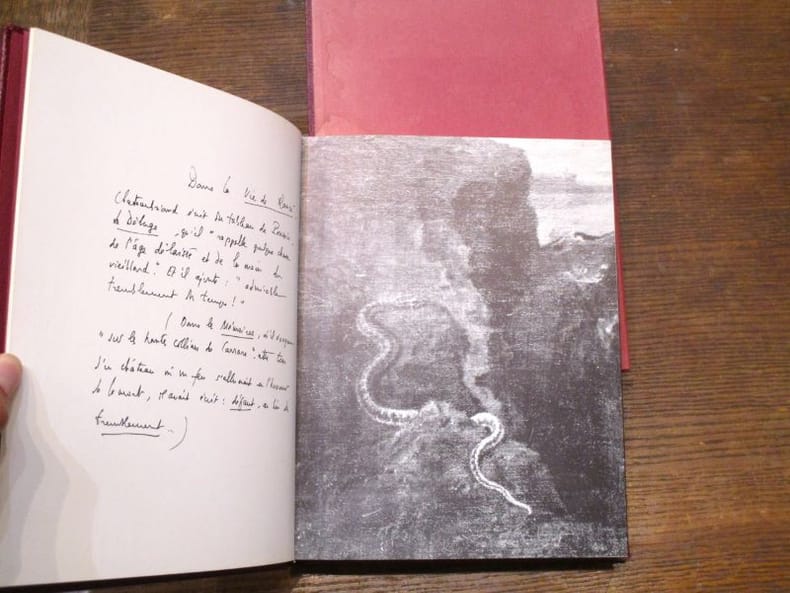 Dans la Vie de Rancé
Chateaubriand écrit du tableau de Poussin
le Déluge, qu'il "rappelle quelque chose
de l'âge délaissé et de la main du
vieillard." Et il ajoute : "admirable
tremblement du temps !"
(Dans les Mémoires, où il
"sur les hautes collines de
d'un château où un feu s'allumait en l'honneur
avait écrit : défaut, au lieu de
tremblement...)